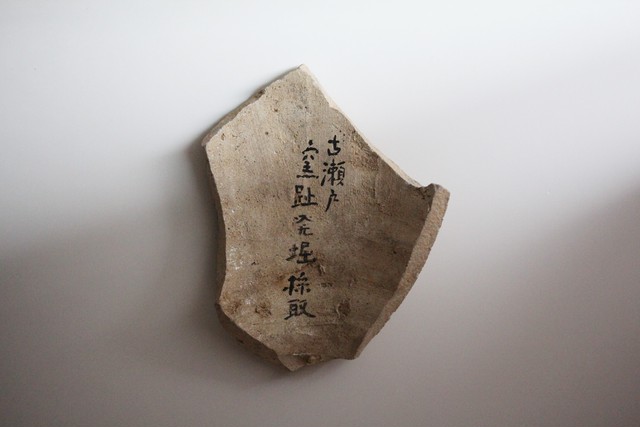 古瀬戸
窯趾発掘採取